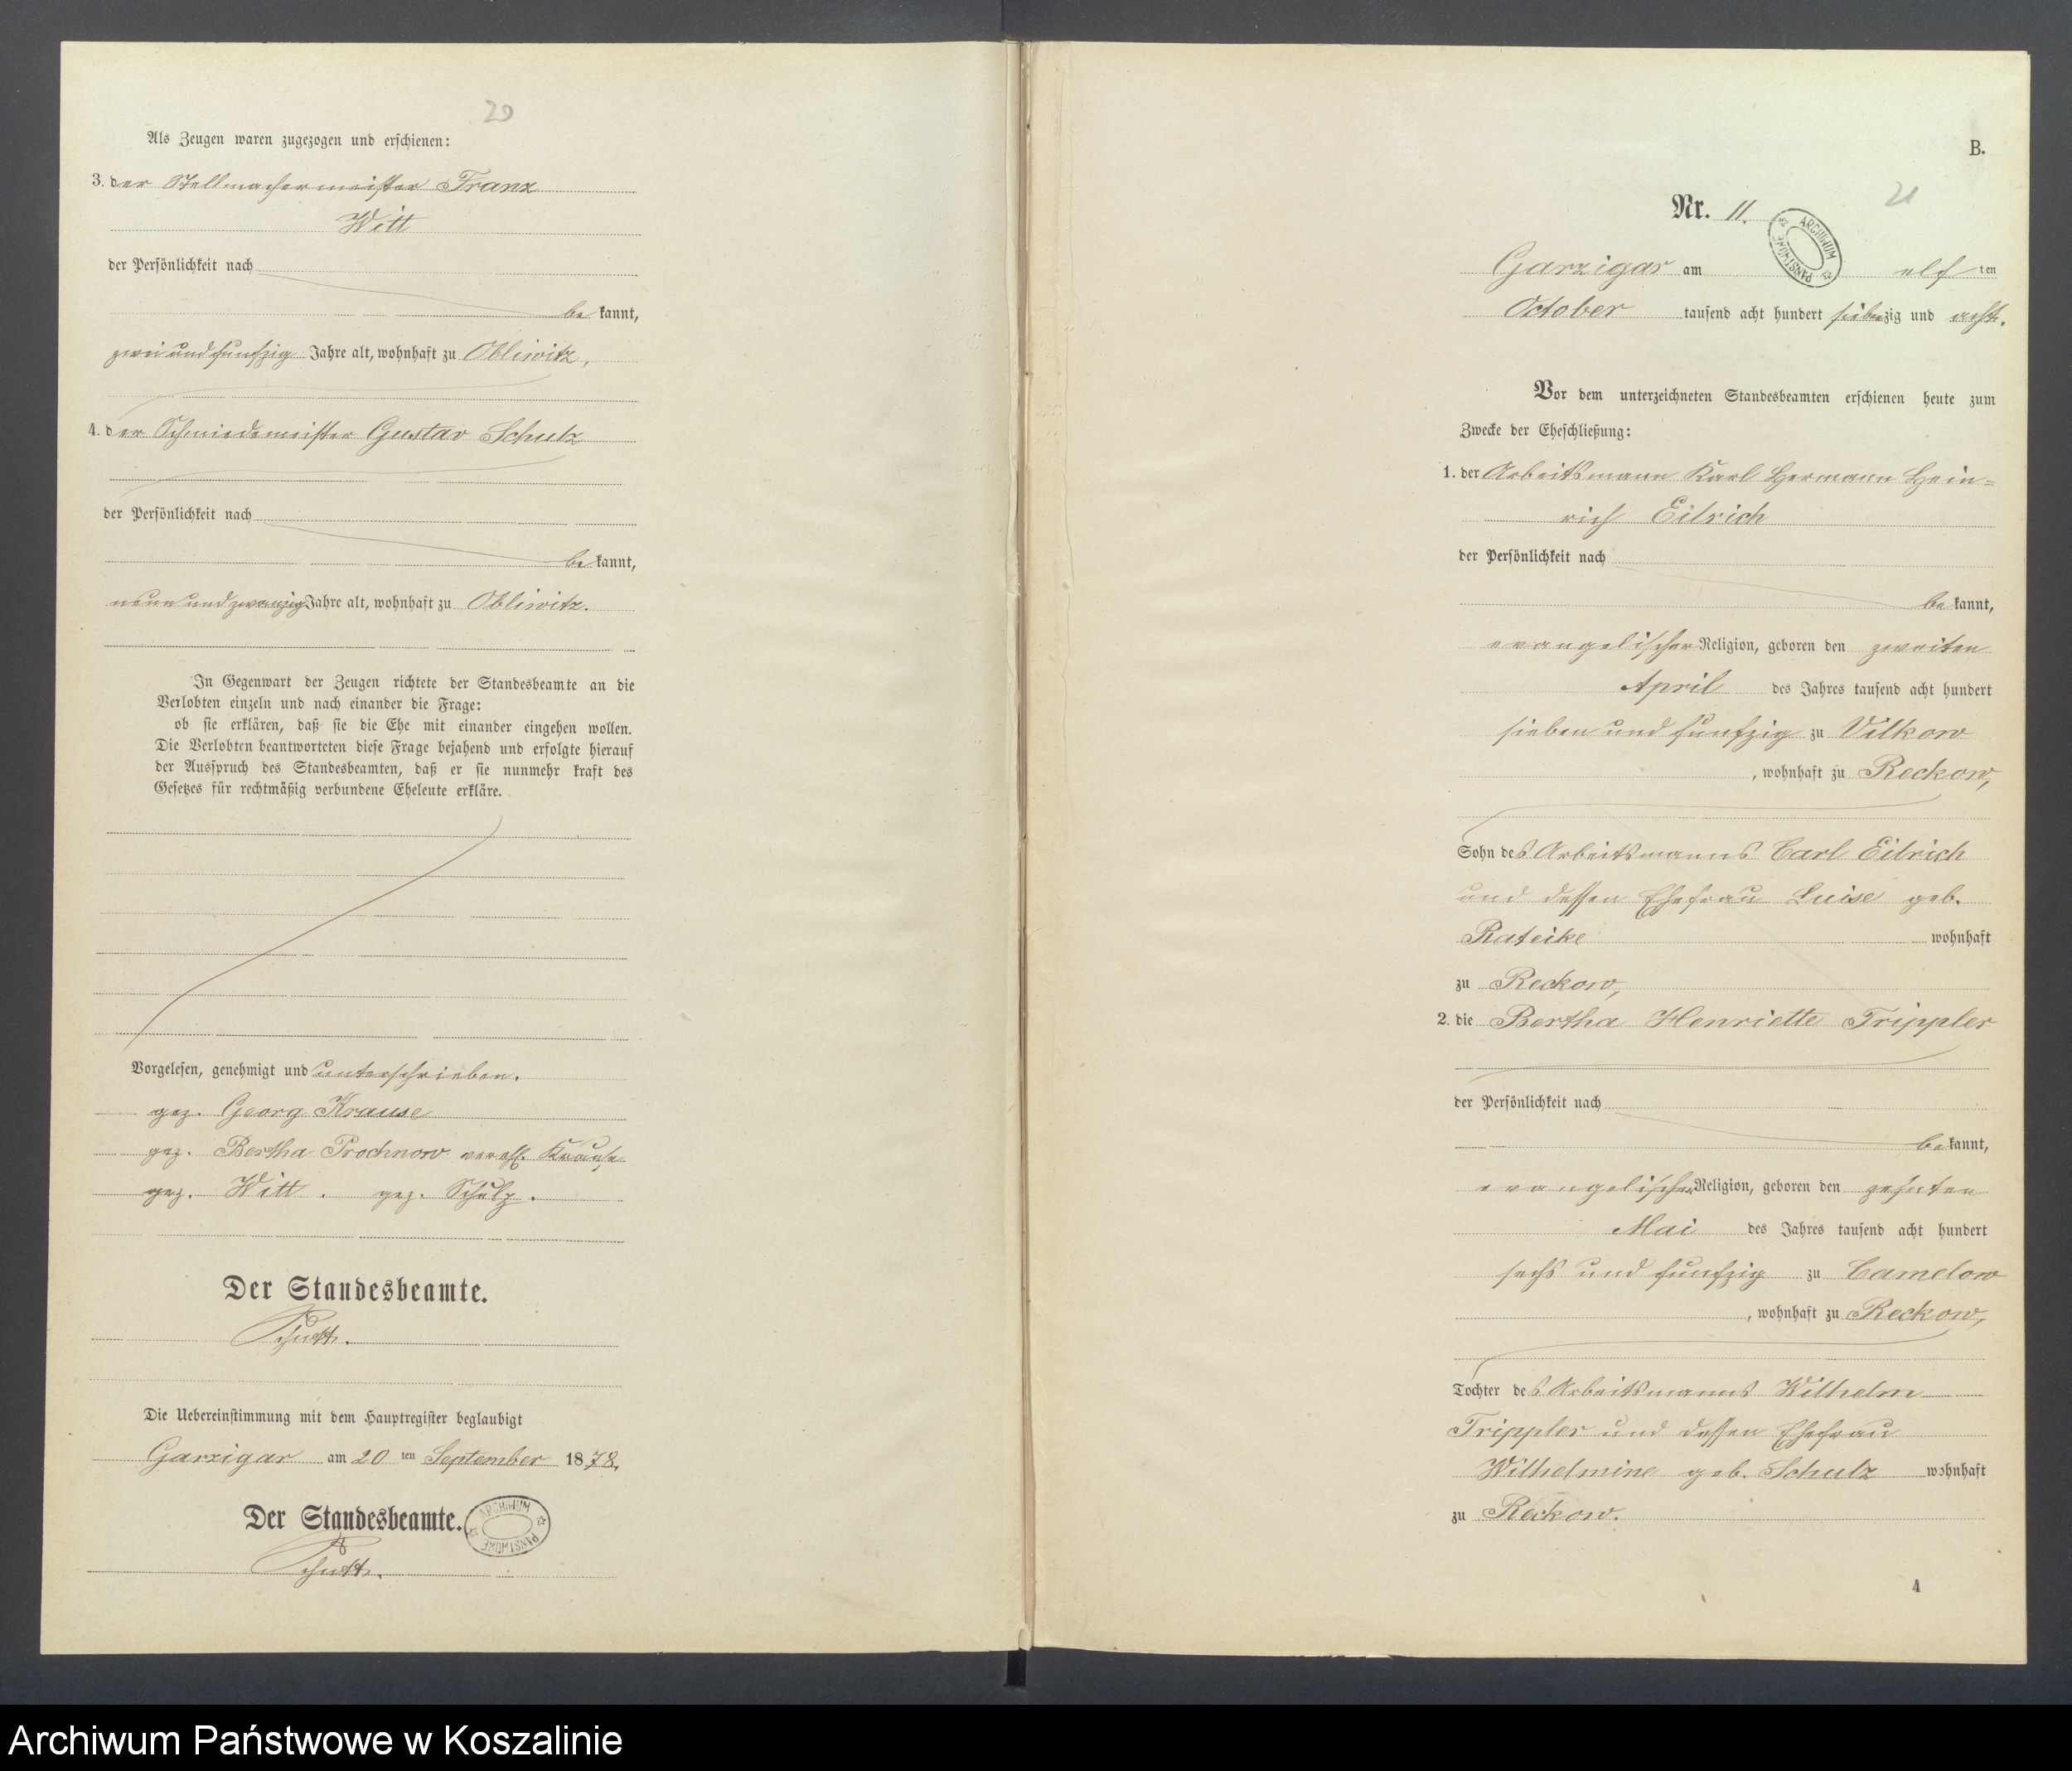 20
Als Zeugen waren zugezogen und erschienen:
3. der Stellmachermeister Franz
Witt
der Persönlichkeit nach
be kannt,
zwei und funfzig Jahre alt, wohnhaft zu Obliwitz,
4. der Schmiedemeister Gustav Schulz
der Persönlichkeit nach
be kannt,
neun und zwanzig Jahre alt, wohnhaft zu Obliwitz.
In Gegenwart der Zeugen richtete der Standesbeamte an die
Verlobten einzeln und nach einander die Frage:
ob sie erklären, daß sie die Ehe mit einander eingehen wollen.
Die Verlobten beantworteten diese Frage bejahend und erfolgte hierauf
der Ausspruch des Standesbeamten, daß er sie nunmehr kraft des
Gesetzes für rechtmäßig verbundene Eheleute erkläre.
Vorgelesen, genehmigt und unterschrieben.
gez. Georg Krause
gez. Bertha Prochnow verehl. Krause
gez. Witt. gez. Schulz.
Der Standesbeamte.
Die Uebereinstimmung mit dem Hauptregister beglaubigt
Garzigar am 20 ten September 1878.
Der Standesbeamte.
ARCHIWUM PAŃSTWOWE
B.
21
Nr. 11.
ARCHIWUM PAŃSTWOWE
Garzigar am elf ten
October tausend acht hundert siebenzig und acht.
Vor dem unterzeichneten Standesbeamten erschienen heute zum
Zwecke der Eheschließung:
1. der Arbeitsmann Karl Hermann Hein=
rich Eilrich
der Persönlichkeit nach
be kannt,
evangelischer Religion, geboren den zweiten
April des Jahres tausend acht hundert
sieben und funfzig zu Vilkow
, wohnhaft zu Reckow,
Sohn des Arbeitsmanns Carl Eilrich
und dessen Ehefrau Luise geb.
Rateike wohnhaft
zu Reckow,
2. die Bertha Henriette Trippler
der Persönlichkeit nach
be kannt,
evangelischer Religion, geboren den zehnten
Mai des Jahres tausend acht hundert
sechs und funfzig zu Camelow
, wohnhaft zu Reckow,
Tochter des Arbeitsmanns Wilhelm
Trippler und dessen Ehefrau
Wilhelmine geb. Schulz wohnhaft
zu Reckow.
4
Archiwum Państwowe w Koszalinie